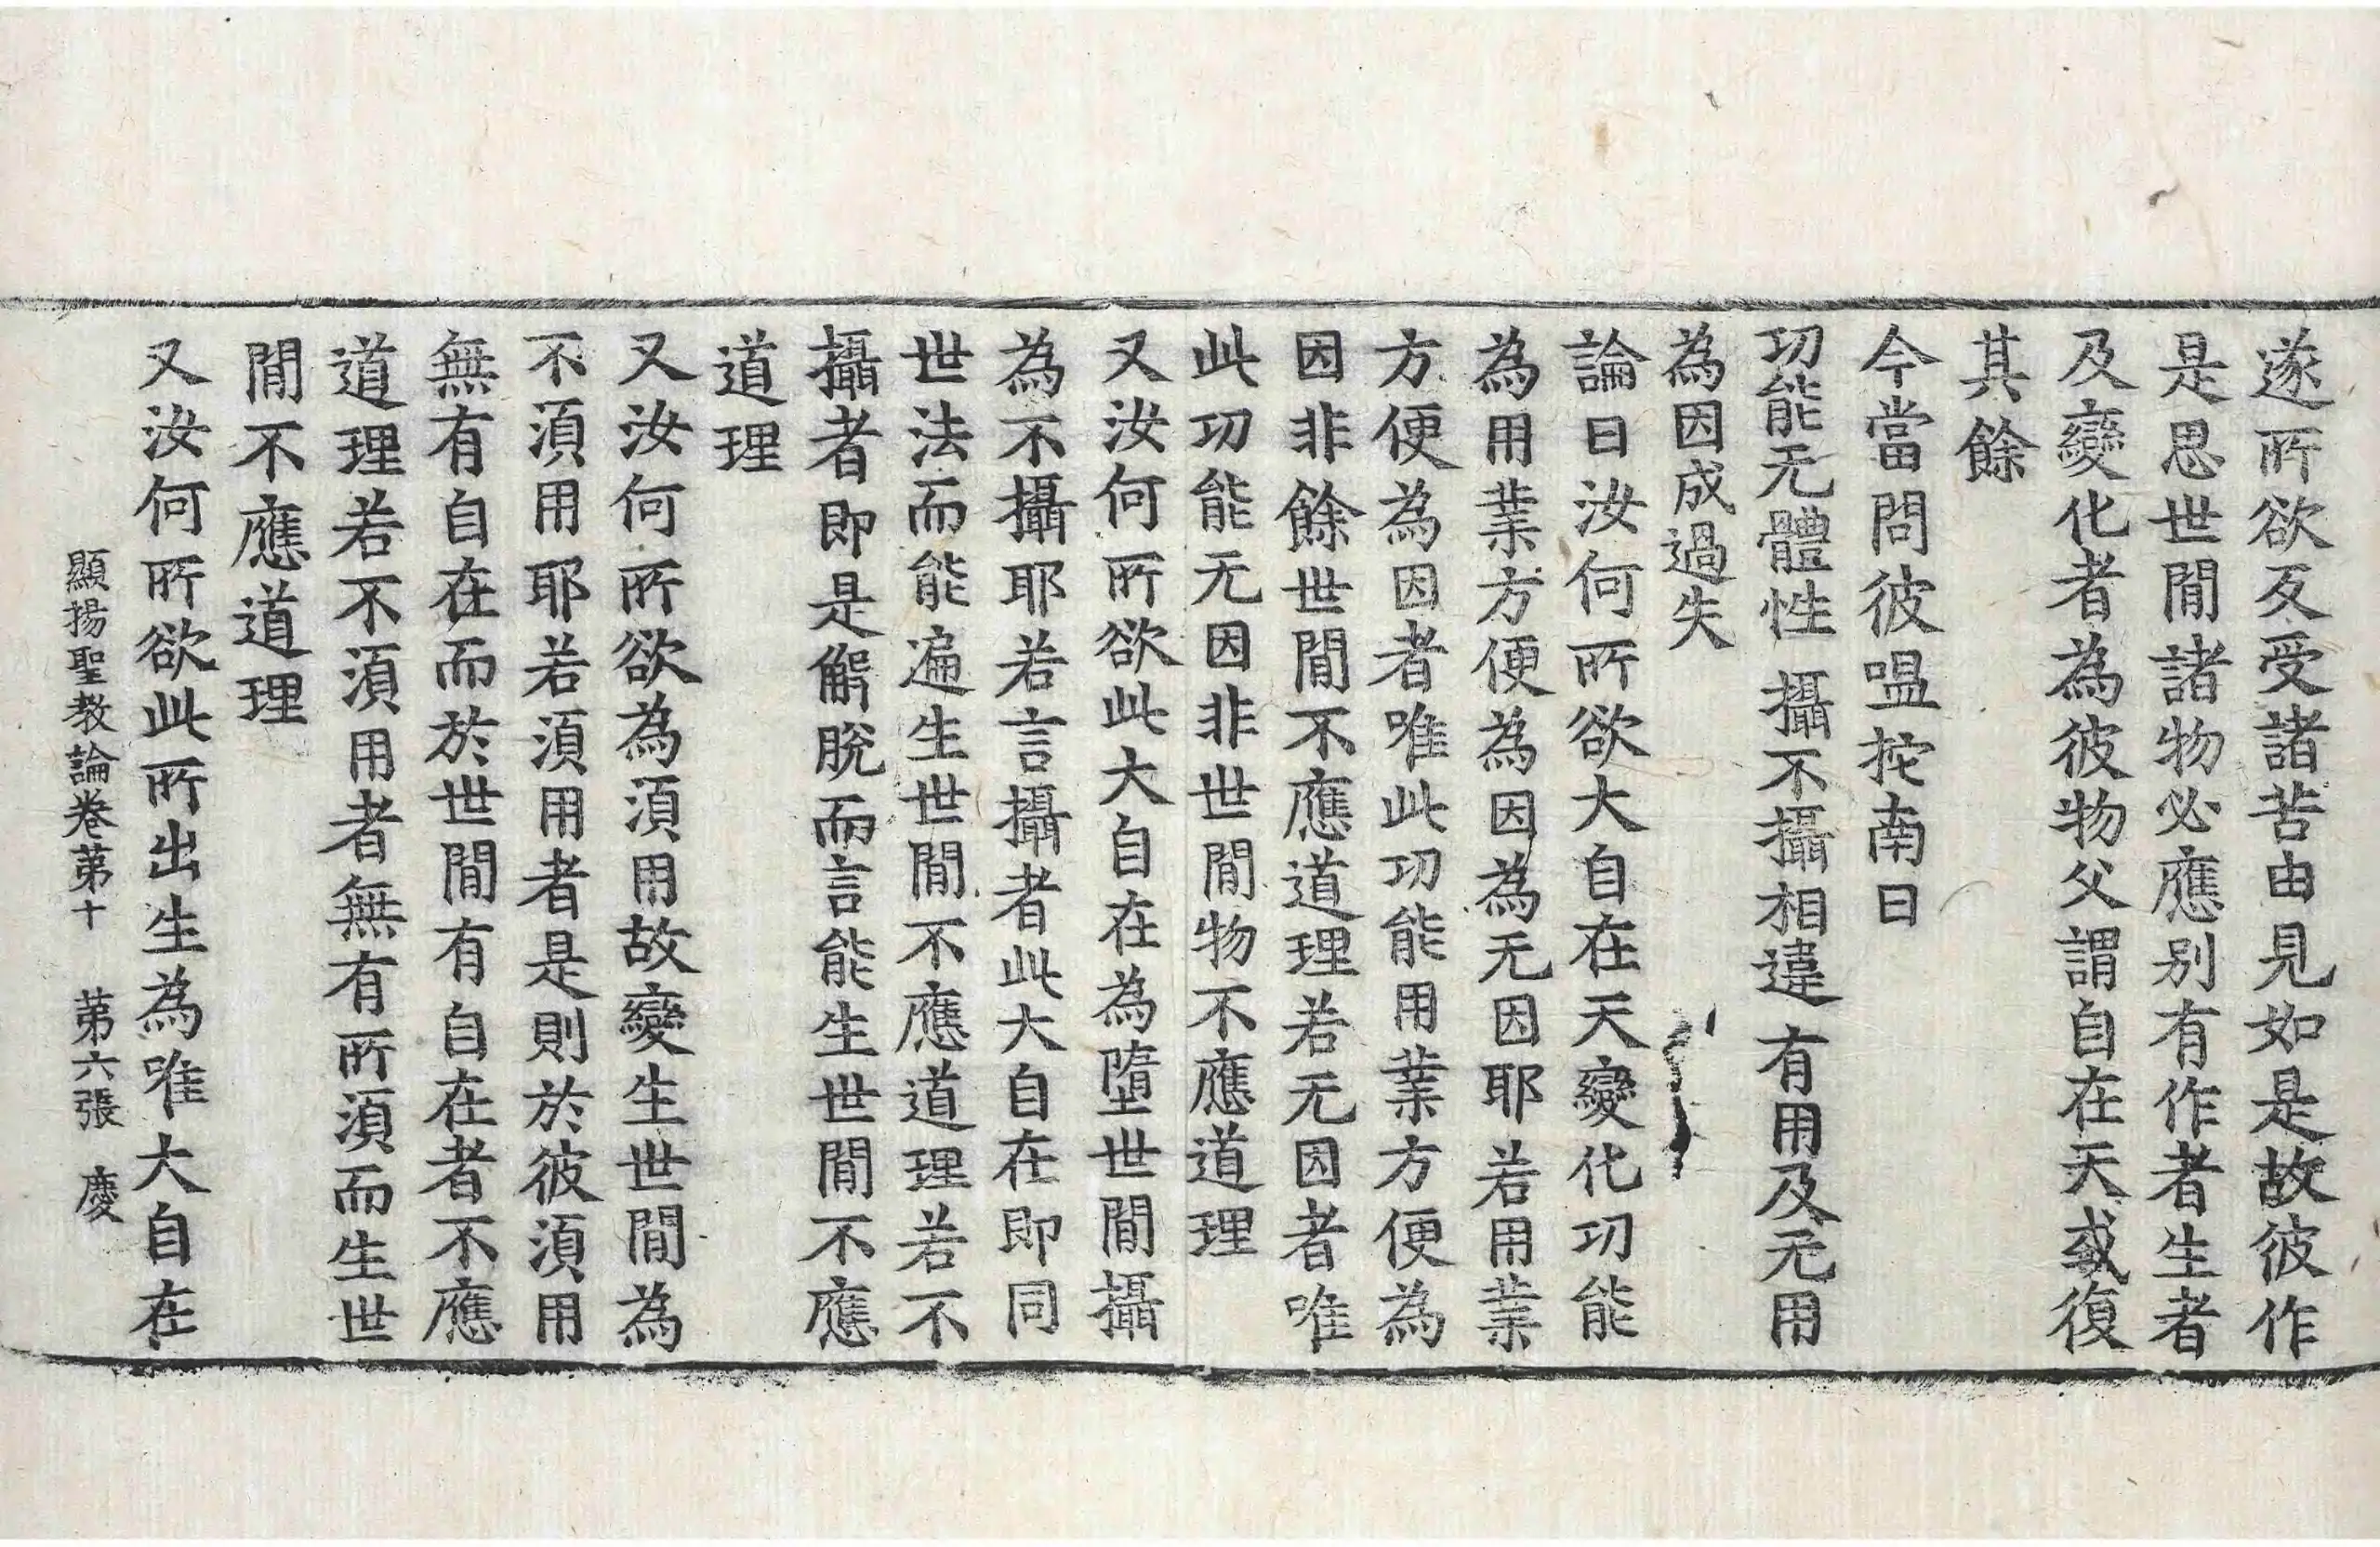 遂所欲反受諸苦由見如是故彼作
是思世閒諸物必應别有作者生者
及變化者為彼物父謂自在天或復
其餘
今當問彼嗢拕南曰
功能无體性 攝不攝相違 有用及无用
為因成過失
論曰汝何所欲大自在天變化功能
為用業方便為因為无因耶若用業
方便為因者唯此功能用業方便為
因非餘世閒不應道理若无因者唯
此功能无因非世閒物不應道理
又汝何所欲此大自在為墮世閒攝
為不攝耶若言攝者此大自在即同
世法而能遍生世閒不應道理若不
攝者即是解脫而言能生世閒不應
道理
又汝何所欲為湏用故變生世閒為
不湏用耶若湏用者是則於彼湏用
無有自在而於世閒有自在者不應
道理若不湏用者無有所湏而生世
閒不應道理
又汝何所欲此所出生為唯大自在
顯揚聖教論卷苐十 苐六張 慶